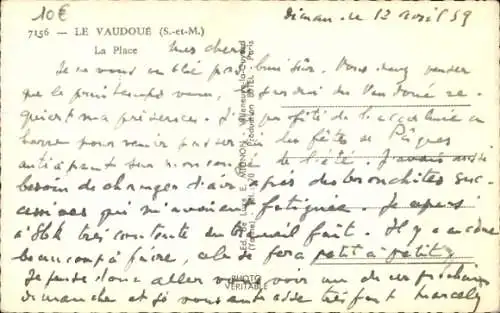 10€
Diman.he 12 Avril 59
7156 — LE VAUDOUÉ (S.-et-M.)
La Place
Mes chers
Je ne vous oublie pas bien sûr. Vous devez penser
que le printemps venu, le jardin du Vaudoué re-
quiert ma présence. J'ai profité de l'accalmie en
bourse pour venir passer ici des fêtes de Pâques
anticipant sur mon congé de l'été. J'avais aussi
besoin de changer d'air après des bronchites suc-
cessives qui m'avaient fatiguée. Je repars
à très contente du travail fait. Il y a encore
beaucoup à faire, cela se fera petit à petit
Je pense donc aller vous voir un de ces prochains
dimanches et je vous embrasse très fort Marcelle
PHOTO
VERITABLE